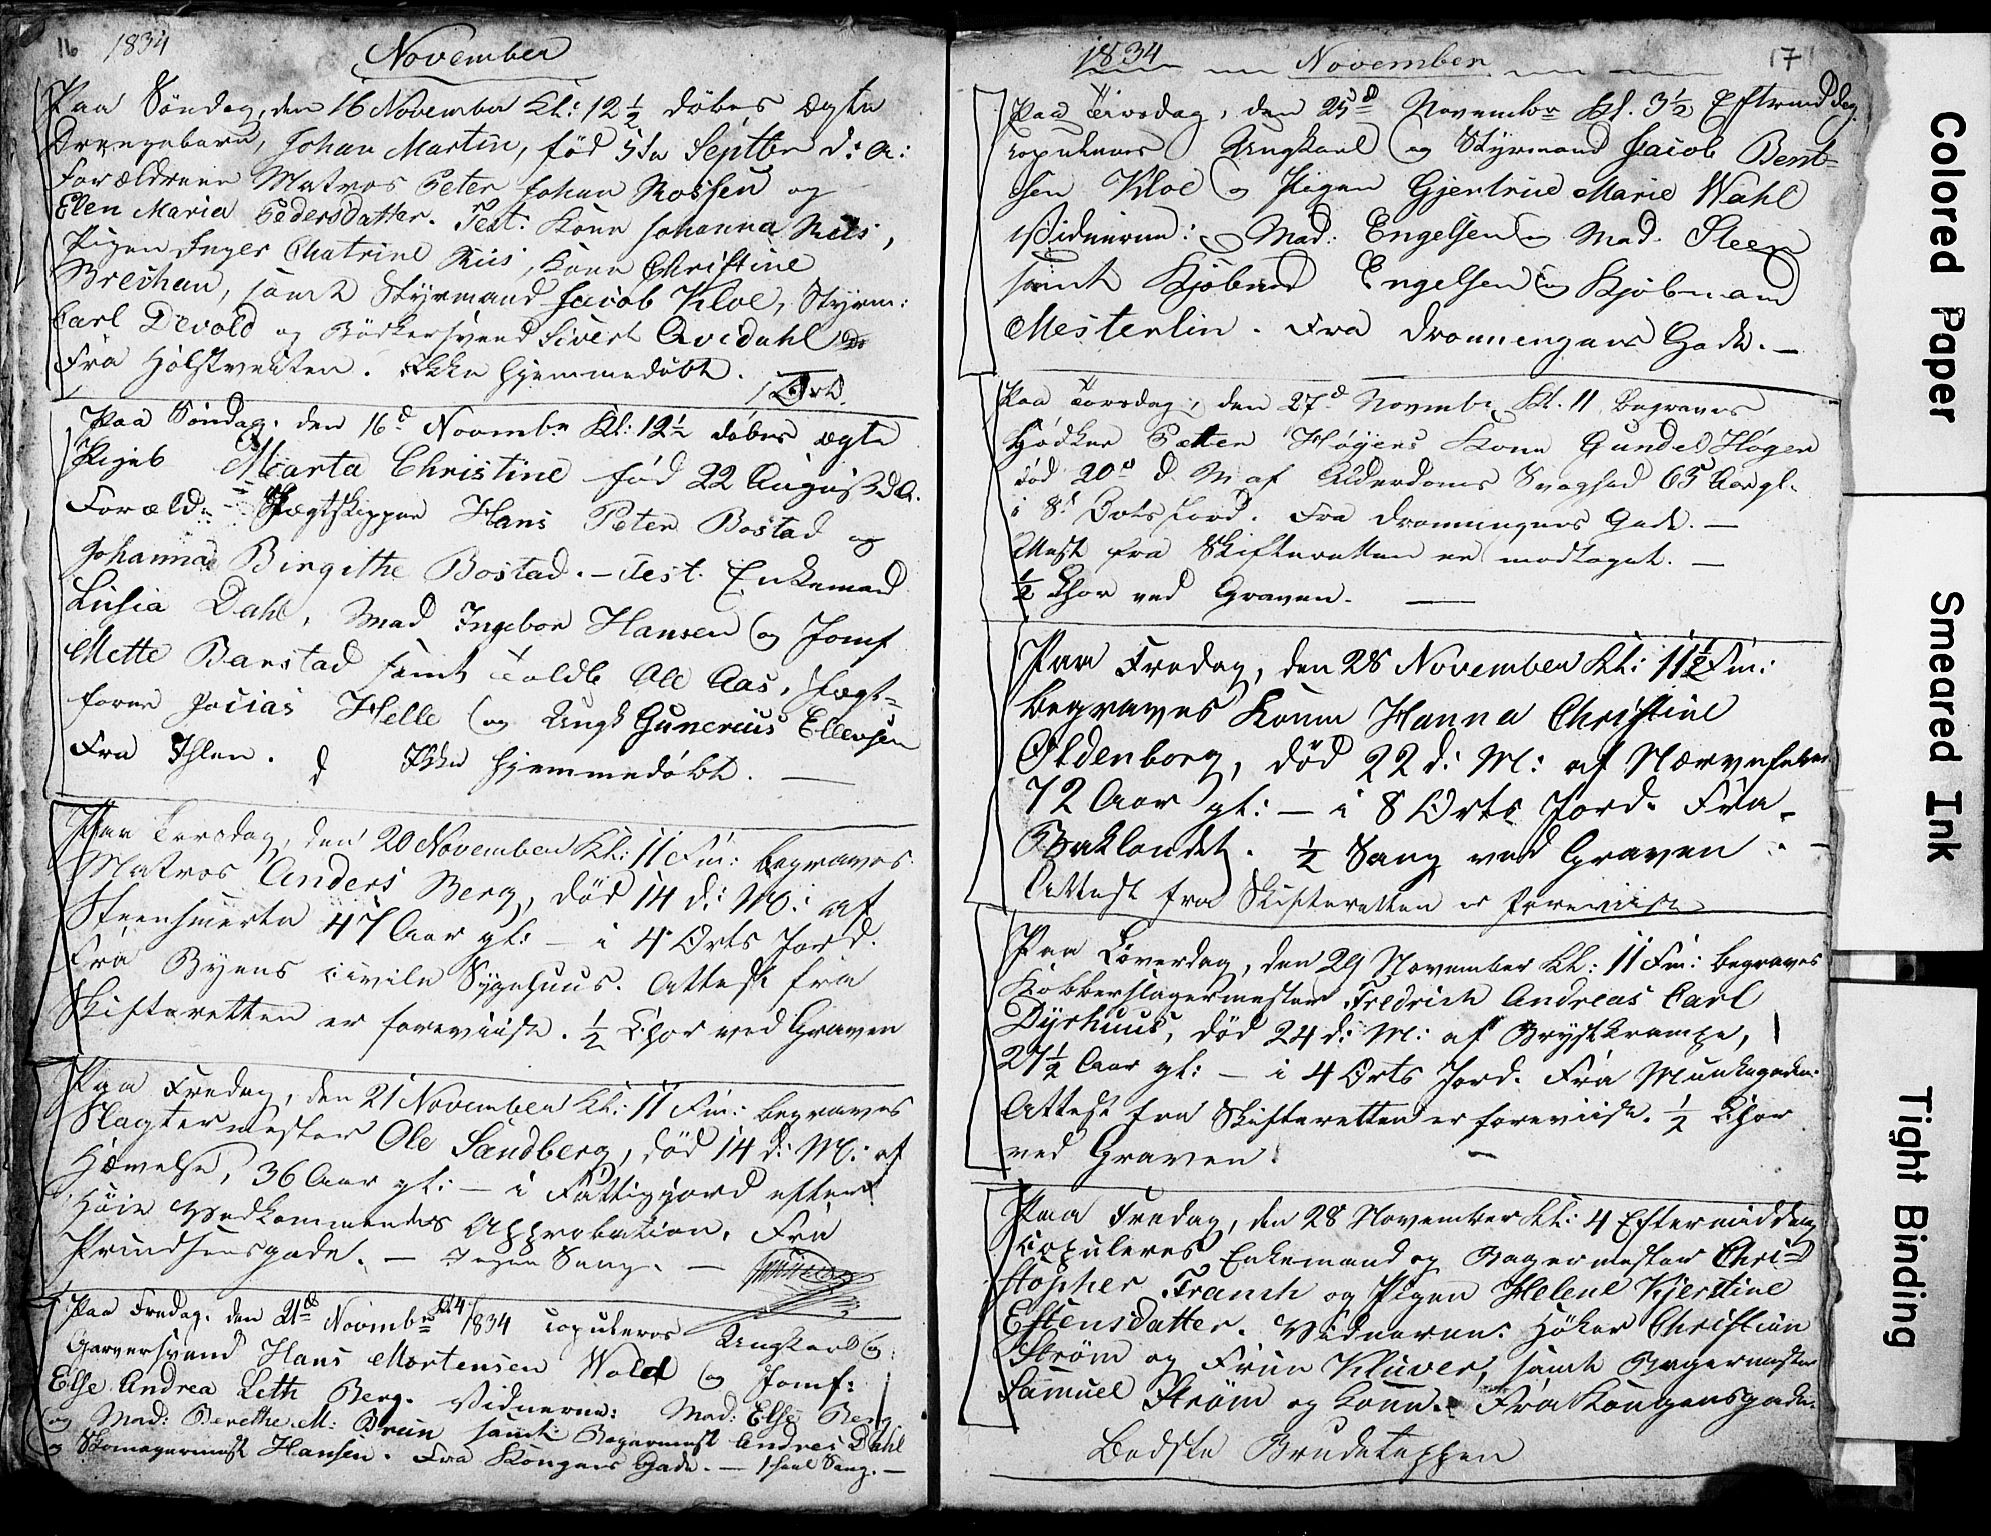 16 1834 November
Paa Søndag, den 16 November Kl: 12 1/2 døbes ægte
Drengebarn, Johan Martin, fød 5te Septbr d: A:
Forældrene Matros Peter Johan Rossen og
Elen Maria Pedersdatter. Test: Kone Johanna Riis,
Pigen Inger Chatrine Riis, Kone Christine
Breshau, samt Styrmand Jacob Kloe, Styrm:
Carl Devold og Bødkersvend Sivert Qvedahl
Fra Holstventen. Ikke hjemmedøbt.
Paa Søndag, den 16d Novembr Kl: 12 1/2 døbes ægte
Pigeb Marta Christine fød 22 August d. A.
Foræld: Jægtskipper Hans Peter Bostad og
Johanna Birgithe Bostad. – Test. Enkemad
Lusia Dahl, Mad Ingebor Hansen og Jomf
Mette Barstad samt Toldb Ole Aas, Jægt-
fører Jocias Helle og Ungk Gunerius Ellevsen
Fra Ihlen. Ikke hjemmedøbt. —
Paa Torsdag, den 20 November Kl: 11 Fm: begraves
Matros Anders Berg, død 14 d: M: af
Steensmerte 47 Aar gl: – i 4 Orts Jord.
Fra Byens civile Sygehuus. Attest fra
Skifteretten er foreviist. 1/2 Chor ved Graven
Paa Fredag, den 21 November Kl: 11 Fm: begraves
Slagtermester Ole Sandberg, død 14 d: M: af
Hævelse, 36 Aar gl: – i Fattigjord efter
Høie Vedkommendes Approbation. Fra
Prindsensgade. – Ingen Sang. –
Paa Fredag, den 21d Novembr 1834 copuleres Ungkarl og
Garversvend Hans Mortensen Wold og Jomf:
Else Andrea Leth Berg. Vidnerne: Mad: Else Berg
og Mad: Berethe M: Bruun samt Bagermest Andres Dahl
og Skomagermest Hansen. Fra Kongens Gade. – 1 heel Sang. –
1834 November 17
Paa Tirsdag, den 25d Novembr Kl. 3 1/2 Eftermiddag
copuleres Ungkarl og Styrmand Jacob Bent-
sen Kloe og Pigen Gjertrue Marie Wahl
Vidnerne: Mad: Engelsen og Mad. Steen
samt Kjøbmd Engelsen og Kjøbmand
Mesterlin. Fra Dronningens Gade. –
Paa Torsdag, den 27d Novembr Kl. 11 begraves
Hødker Petter Høgens Kone Gundel Høgen
død 20d d. M af Alderdoms Svaghed 65 Aar gl.
i 8t Orts Jord. Fra Dronningens Gade. –
Attest fra Skifteretten er modtaget. –
1/2 Chor ved Graven. —
Paa Fredag, den 28 November Kl: 11 1/2 Fm:
begraves Konen Hanna Christine
Oldenborg, død 22 d: M: af Nærvefeber
72 Aar gl: – i 8 Orts Jord. Fra
Baklandet. 1/2 Sang ved Graven. –
Attest fra Skifteretten er foreviist
Paa Løverdag, den 29 November Kl: 11 Fm: begraves
Kobberslagermester Fredrich Andreas Carl
Dyrhuus, død 24 d: M: af Brystkrampe,
27 1/2 Aar gl: – i 4 Orts Jord. Fra Munkegaden.
Attest fra Skifteretten er foreviist. 1/2 Chor
ved Graven. –
Paa Fredag, den 28 November Kl: 4 Eftermiddag
copuleres Enkemand og Bagermester Chri-
stopher Franch og Pigen Helene Kjerstine
Estensdatter. Vidnerne: Høker Christian
Strøm og Frue Klüver, samt Bagermester
Samuel Strøm og Kone. Fra Kongensgaden.
Bedste Brudeteppen
Colored Paper
Smeared Ink
Tight Binding